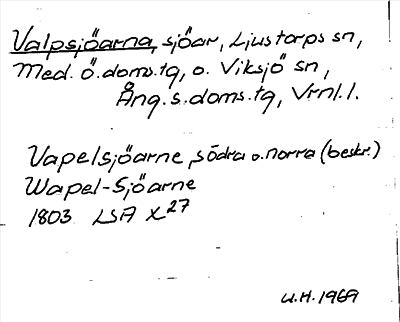 Valpsjöarna, sjöar, Ljustorps sn,
Med. ö. doms.tg, o. Viksjö sn,
Ång. s. doms.tg, Vrnl. l.
Vapelsjöarne, södra o. norra (beskr.)
Wapel-Sjöarne
1803 LSA X27
U.H. 1969